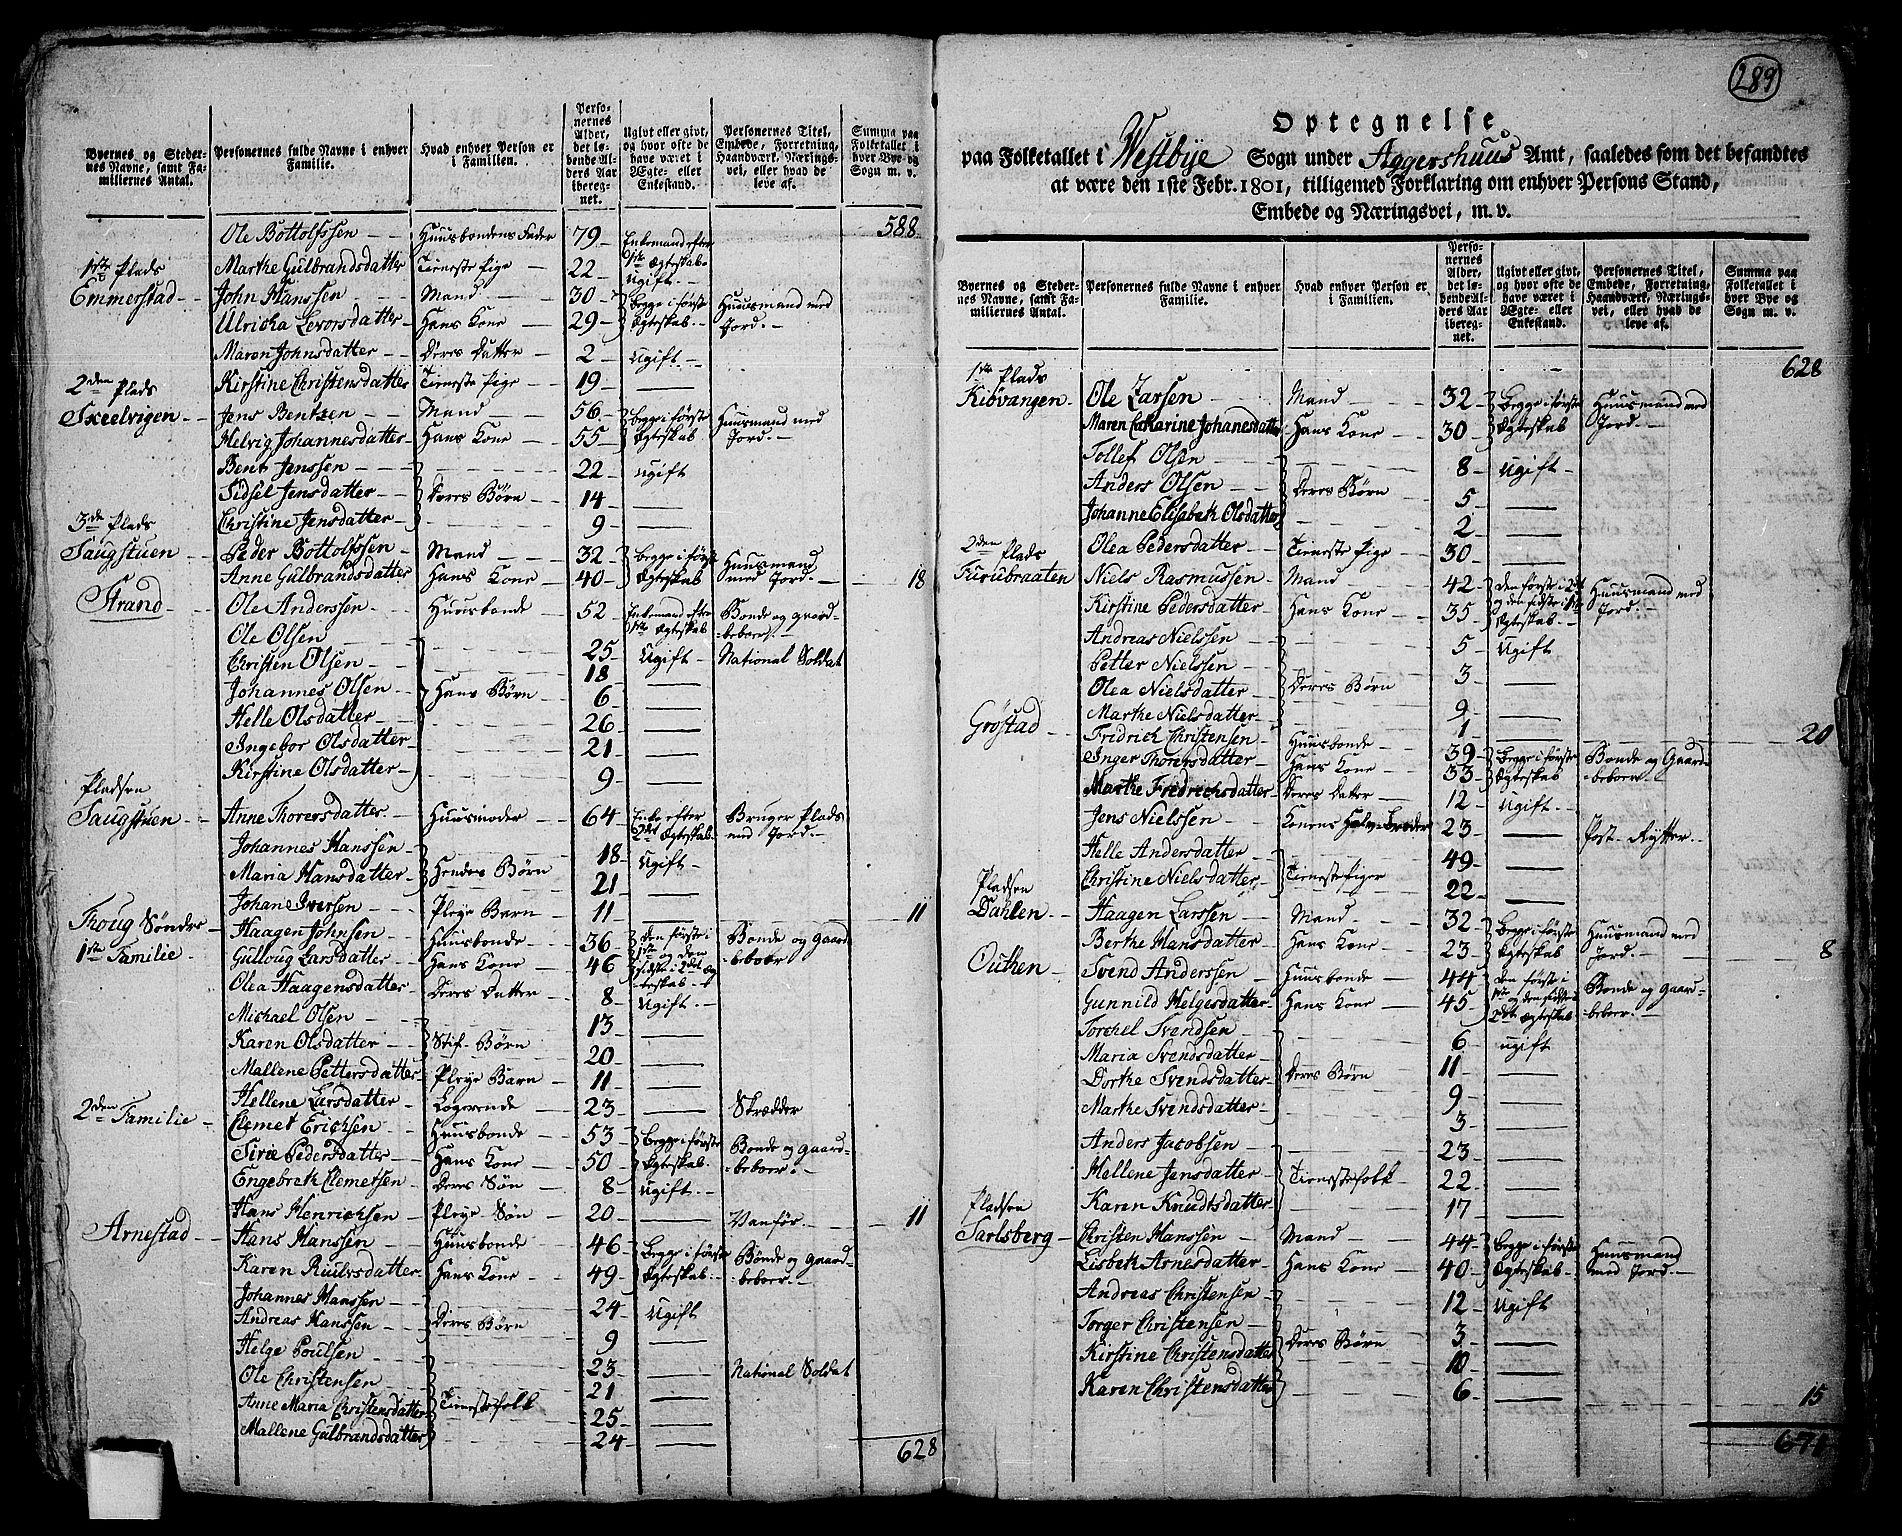 Byernes og Stedernes Navne, samt Familiernes Antal. | Personernes fulde Navne i enhver Familie. | Hvad enhver Person er i Familien. | Personernes Alder, det løbende Alders Aar iberegnet. | Ugivt eller givt, og hvor ofte de have været i Ægte- eller Enkestand. | Personernes Titel, Embede, Forretning, Haandværk, Næringsvei, eller hvad de leve af. | Summa paa Folketallet i hver Bye og Sogn m. v.
588
Ole Bottolfssen | Huusbondens Fader | 79 | Enkemand efter 1ste Ægteskab
1ste Plads | Marthe Gulbrandsdatter | Tieneste Pige | 22 | ugift
Emmerstad | John Hanssen | Mand | 30 | begge i første Ægteskab | Huusmand med Jord
Ulricka Levorsdatter | Hans Kone | 29
Maren Johnsdatter | Deres Datter | 2 | ugift
2den Plads | Kirstine Christensdatter | Tieneste Pige | 19
Skeelvigen | Jens Bentzen | Mand | 56 | begge i første Ægteskab | Huusmand med Jord
Helvig Johannesdatter | Hans Kone | 55
Bent Jenssen | 22 | ugift
Sidsel Jensdatter | Deres Børn | 14
3de Plads | Christine Jensdatter | 9
Saugstuen | Peder Bottolfssen | Mand | 32 | begge i første Ægteskab | Huusmand med Jord
Anne Gulbrandsdatter | Hans Kone | 40 | 18
Strand | Ole Anderssen | Huusbonde | 52 | Enkemand efter 1ste Ægteskab | Bonde og gaardbeboer
Ole Olsen | 25 | Ugift | National Soldat
Christen Olsen | 18
Johannes Olsen | Hans Børn | 6
Helle Olsdatter | 26
Ingebor Olsdatter | 21
Kirstine Olsdatter | 9
Pladsen
Saugstuen | Anne Thorersdatter | Huusmoder | 64 | Enke efter 2det Ægteskab | Bruger Plads med Jord
Johannes Hanssen | 18 | Ugift
Maria Hansdatter | Hendes Børn | 21
Johan Iversen | Pleye Barn | 11 | 11
Thoug Søndre | Haagen Johnsen | Huusbonde | 36 | den første i 1ste og den sidste i 2det Ægteskab | Bonde og gaardbeboer
1ste Familie | Gulloug Larsdatter | Hans Kone | 46
Olea Haagensdatter | Deres Datter | 8 | Ugift
Michael Olsen | 13
Karen Olsdatter | Stif-Børn | 20
Mallene Pettersdatter | Pleye Barn | 11
Hellene Larsdatter | Logerende | 23 | Skrædder
2den Familie | Clemet Erichsen | Huusbonde | 53 | begge i første Ægteskab | Bonde og gaardbeboer
Siri Pedersdatter | Hans Kone | 50
Engebreth Clemetsen | Deres Søn | 8 | ugift
Hans Henrichsen | Pleye Søn | 20 | Vanför | 11
Arnestad | Hans Hanssen | Huusbonde | 46 | begge i første Ægteskab | Bonde og gaardbeboer
Karen Ruulvsdatter | Hans Kone | 49
Johannes Hanssen | 24 | Ugift
Andreas Hanssen | Deres Børn | 9
Helge Poulsen | 23 | National Soldat
Ole Christensen | 21
Anne Maria Christensdatter | Tienestefolk | 25
Mallene Gulbrandsdatter | 24
628
289
Optegnelse
paa Folketallet i Westbye Sogn under Aggershuus Amt, saaledes som det befandtes
at være den 1ste Febr. 1801, tilligemed Forklaring om enhver Persons Stand,
Embede og Næringsvei, m. v.
Byernes og Stedernes Navne, samt Familiernes Antal. | Personernes fulde Navne i enhver Familie. | Hvad enhver Person er i Familien. | Personernes Alder, det løbende Alders Aar iberegnet. | Ugivt eller givt, og hvor ofte de have været i Ægte- eller Enkestand. | Personernes Titel, Embede, Forretning, Haandværk, Næringsvei, eller hvad de leve af. | Summa paa Folketallet i hver Bye og Sogn m. v.
1ste Plads | 628
Kiøvangen | Ole Larsen | Mand | 32 | begge i første Ægteskab | Huusmand med Jord
Maren Catharine Johanesdatter | Hans Kone | 30
Tollef Olsen | 8 | ugift
Anders Olsen | Deres Børn | 5
Johanne Elisabeth Olsdatter | 2
2den Plads | Olea Pedersdatter | Tieneste Pige | 30
Furubraaten | Niels Rasmussen | Mand | 42 | den første i 2det og den sidste i 1ste Ægteskab | Huusmand med Jord
Kirstine Pedersdatter | Hans Kone | 35
Andreas Nielssen | 5 | Ugift
Petter Nielssen | 3
Olea Nielsdatter | Deres Børn | 9
Marthe Nielsdatter | 1 | 20
Grøstad | Fridrich Christensen | Huusbonde | 39 | begge i første Ægteskab | Bonde og Gaardbeboer
Inger Thorersdatter | Hans Kone | 33
Marthe Fridrichsdatter | Deres Datter | 12 | ugift
Jens Nielssen | Konens Halv-Broder | 23 | Post-Rytter
Helle Andersdatter | 49
Christine Nielsdatter | Tienestepiger | 22
Pladsen
Dahlen | Haagen Larssen | Mand | 32 | begge i første Ægteskab | Huusmand med Jord
Berthe Hansdatter | Hans Kone | 23 | 8
Outhen | Svend Anderssen | Huusbonde | 44 | den første i 1ste og den sidste i 2det Ægteskab | Bonde og gaardbeboer
Gunnild Helgesdatter | Hans Kone | 45
Torchel Svendsen | 6 | ugift
Maria Svendsdatter | 11
Dorthe Svendsdatter | Deres Børn | 9
Marthe Svendsdatter | 3
Anders Jacobsen | 23
Mellene Jensdatter | Tienestefolk | 22
Karen Knudtsdatter | 17
Pladsen
Tarlsberg | Christen Hanssen | Mand | 44 | begge i første Ægteskab | Huusmand med Jord
Lisbeth Arnesdatter | Hans Kone | 40
Andreas Christensen | 12 | Ugift
Torger Christensen | 3
Kirstine Christensdatter | Deres Børn | 10
Karen Christensdatter | 6 | 15
671